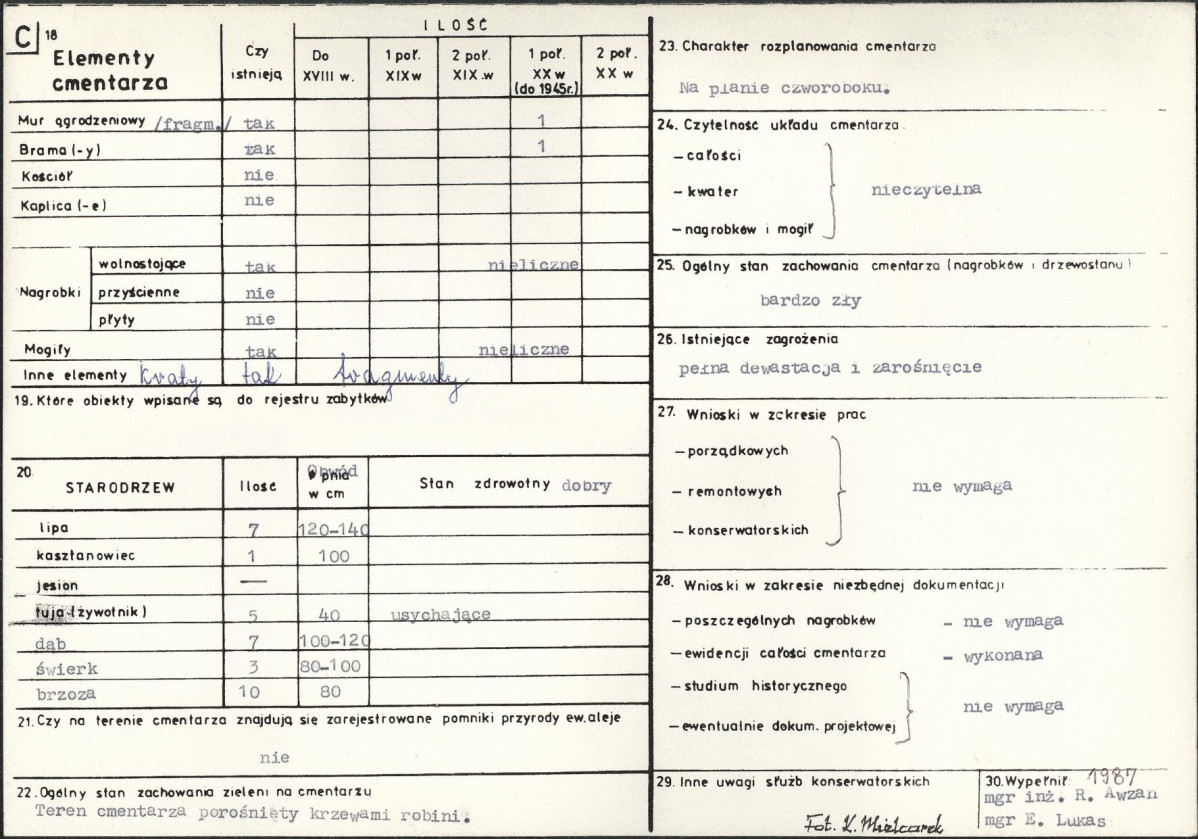 C 18
Elementy cmentarza
Czy istnieją
ILOŚĆ
Do XVIII w.
1 poł. XIX w
2 poł. XIX w
1 poł. XX w (do 1945r.)
2 poł. XX w
Mur ogrodzeniowy /fragm./ tak 1
Brama (-y) tak 1
Kościół nie
Kaplica (-e) nie
Nagrobki
wolnostojące tak nieliczne
przyścienne nie
płyty nie
Mogiły tak nieliczne
Inne elementy kraty tak fragmenty
19. Które obiekty wpisane są do rejestru zabytków
20.
STARODRZEW Ilość Obwód pnia w cm Stan zdrowotny dobry
lipa 7 120-140
kasztanowiec 1 100
jesion —
tuja (żywotnik) 5 40 usychające
dąb 7 100-120
świerk 3 80-100
brzoza 10 80
21. Czy na terenie cmentarza znajdują się zarejestrowane pomniki przyrody ew. aleje
nie
22. Ogólny stan zachowania zieleni na cmentarzu
Teren cmentarza porośnięty krzewami robini.
23. Charakter rozplanowania cmentarza
Na planie czworoboku.
24. Czytelność układu cmentarza
— całości
— kwater nieczytelna
— nagrobków i mogił
25. Ogólny stan zachowania cmentarza (nagrobków i drzewostanu)
bardzo zły
26. Istniejące zagrożenia
pełna dewastacja i zarośnięcie
27. Wnioski w zakresie prac
— porządkowych
— remontowych nie wymaga
— konserwatorskich
28. Wnioski w zakresie niezbędnej dokumentacji
— poszczególnych nagrobków - nie wymaga
— ewidencji całości cmentarza - wykonana
— studium historycznego
nie wymaga
— ewentualnie dokum. projektowej
29. Inne uwagi służb konserwatorskich
Fot. K. Mielcarek
30. Wypełnił 1987
mgr inż. R. Awzan
mgr E. Lukas